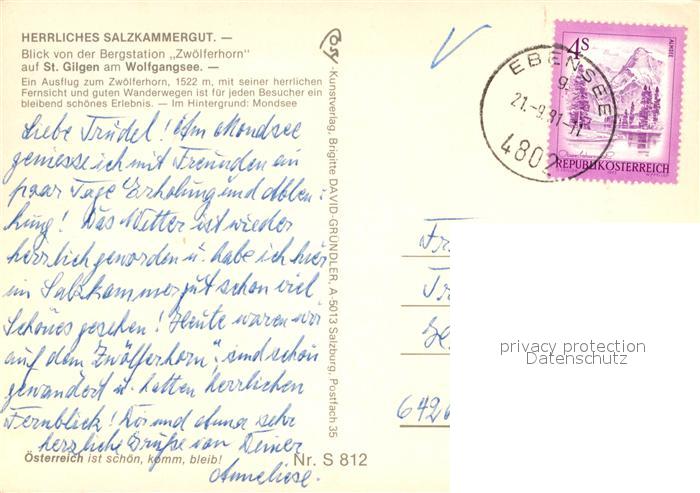 HERRLICHES SALZKAMMERGUT. —
Blick von der Bergstation „Zwölferhorn"
auf St. Gilgen am Wolfgangsee. —
Ein Ausflug zum Zwölferhorn, 1522 m, mit seiner herrlichen
Fernsicht und guten Wanderwegen ist für jeden Besucher ein
bleibend schönes Erlebnis. — Im Hintergrund: Mondsee
Liebe Trudel! Am Mondsee
geniesse ich mit Freunden ein
paar Tage Erholung und Ablen-
kung! Das Wetter ist wieder
herrlich geworden u. habe ich hier
im Salzkammergut schon viel
Schönes gesehen! Heute waren wir
auf dem „Zwölferhorn", sind schön
gewandert u. hatten herrlichen
Fernblick! Dir und sehr
herzliche Grüße von Deiner
Anneliese.
Österreich ist schön, komm, bleib!
Nr. S 812
Cosy-Kunstverlag, Brigitte DAVID-GRÜNDLER, A-5013 Salzburg, Postfach 35
4S
ALMSEE
REPUBLIK ÖSTERREICH
EBENSEE
21.-9.81-17
g
4802
Fr
Tr
642
privacy protection
Datenschutz